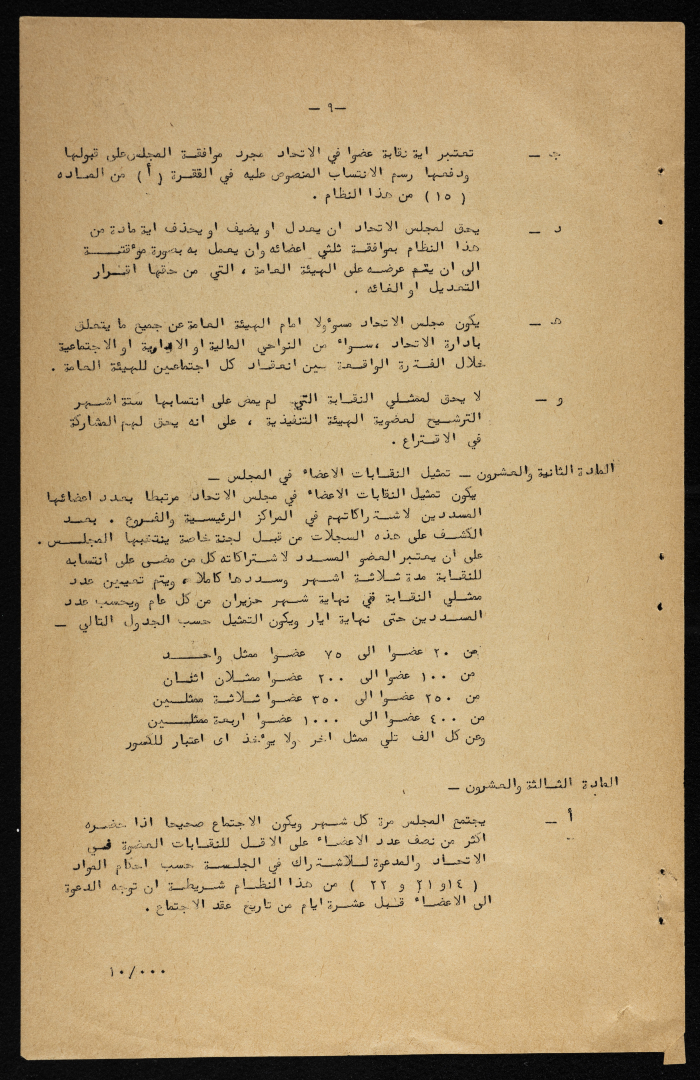 — ٩ —
ج — تعتبر اية نقابة عضوا في الاتحاد مجرد موافقة المجلس على قبولها
ودفعها رسم الانتساب المنصوص عليه في الفقرة ( أ ) من الماده
( ١٥ ) من هذا النظام .
د — يحق لمجلس الاتحاد ان يعدل او يضيف او يحذف اية مادة من
هذا النظام بموافقة ثلثي اعضائه وان يعمل به بصورة مؤقتة
الى ان يتم عرضه على الهيئة العامة ، التي من حقها اقرار
التعديل او الغائه .
هـ — يكون مجلس الاتحاد مسوءولا امام الهيئة العامة عن جميع ما يتعلق
بادارة الاتحاد ، سواء من النواحي المالية او الادارية او الاجتماعية
خلال الفترة الواقعة بين انعقاد كل اجتماعين للهيئة العامة .
و — لا يحق لممثلي النقابة التي لم يمض على انتسابها ستة اشهر
الترشيح لعضوية الهيئة التنفيذية ، على انه يحق لهم المشاركة
في الاقتراع .
المادة الثانية والعشرون — تمثيل النقابات الاعضاء في المجلس —
يكون تمثيل النقابات الاعضاء في مجلس الاتحاد مرتبطا بعدد اعضائها
المسددين لاشتراكاتهم في المراكز الرئيسية والفروع . بعد
الكشف على هذه السجلات من قبل لجنة خاصة ينتخبها المجلس .
على ان يعتبر العضو المسدد لاشتراكاته كل من مضى على انتسابه
للنقابة مدة ثلاثة اشهر وسددها كاملا ، ويتم تعيين عدد
ممثلي النقابة قي نهاية شهر حزيران من كل عام ويحسب عدد
المسددين حتى نهاية ايار ويكون التمثيل حسب الجدول التالي —
من ٢٠ عضوا الى ٧٥ عضوا ممثل واحد
من ١٠٠ عضوا الى ٢٠٠ عضوا ممثلان اثنان
من ٢٥٠ عضوا الى ٣٥٠ عضوا ثلاثة ممثلين
من ٤٠٠ عضوا الى ١٠٠٠ عضوا اربعة ممثلين
وعن كل الف تلي ممثل اخر ولا يوءخذ اى اعتبار للكسور
المادة الثالثة والعشرون —
أ — يجتمع المجلس مرة كل شهر ويكون الاجتماع صحيحا اذا حضره
اكثر من نصف عدد الاعضاء على الاقل للنقابات العضوة في
الاتحاد والمدعوة للاشتراك في الجلسة حسب احكام المواد
( ١٤ و ٢١ و ٢٢ ) من هذا النظام شريطة ان توجه الدعوة
الى الاعضاء قبل عشرة ايام من تاريخ عقد الاجتماع .
١٠/٠٠٠